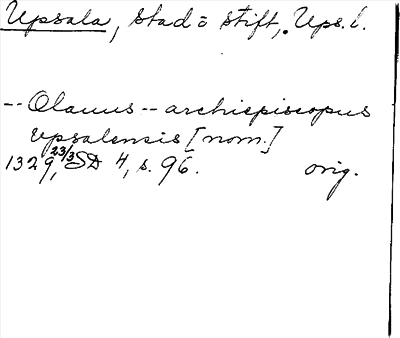 Upsala, stad o stift, Ups. l.
-- Olauus -- archiepiscopus
vpsalensis [nom.]
1329, 23/3 SD 4, s. 96. orig.